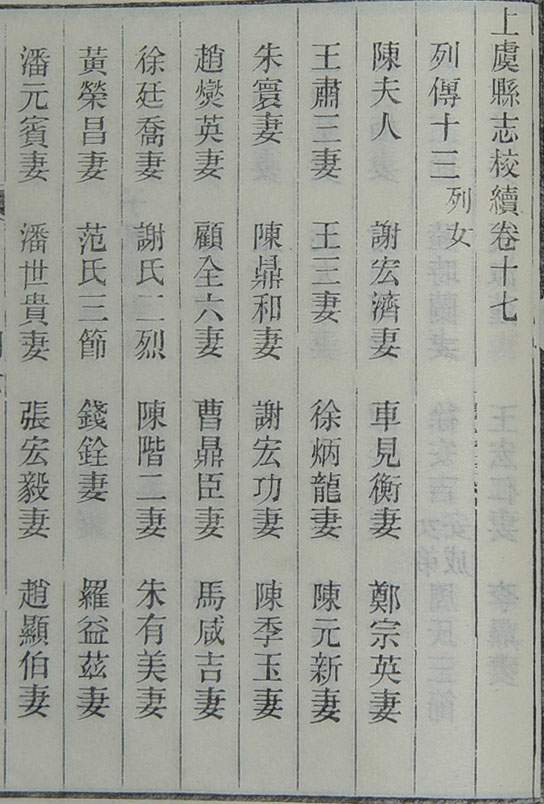 上虞縣志校續卷十七
列傳十三 列女
陳夫人 謝宏濟妻 車見衡妻 鄭宗英妻
王肅三妻 王三妻 徐炳龍妻 陳元新妻
朱寰妻 陳鼎和妻 謝宏功妻 陳季玉妻
趙爕英妻 顧全六妻 曹鼎臣妻 馬咸吉妻
徐廷喬妻 謝氏二烈 陳階二妻 朱有美妻
黃榮昌妻 范氏三節 錢銓妻 羅益茲妻
潘元賓妻 潘世貴妻 張宏毅妻 趙顯伯妻